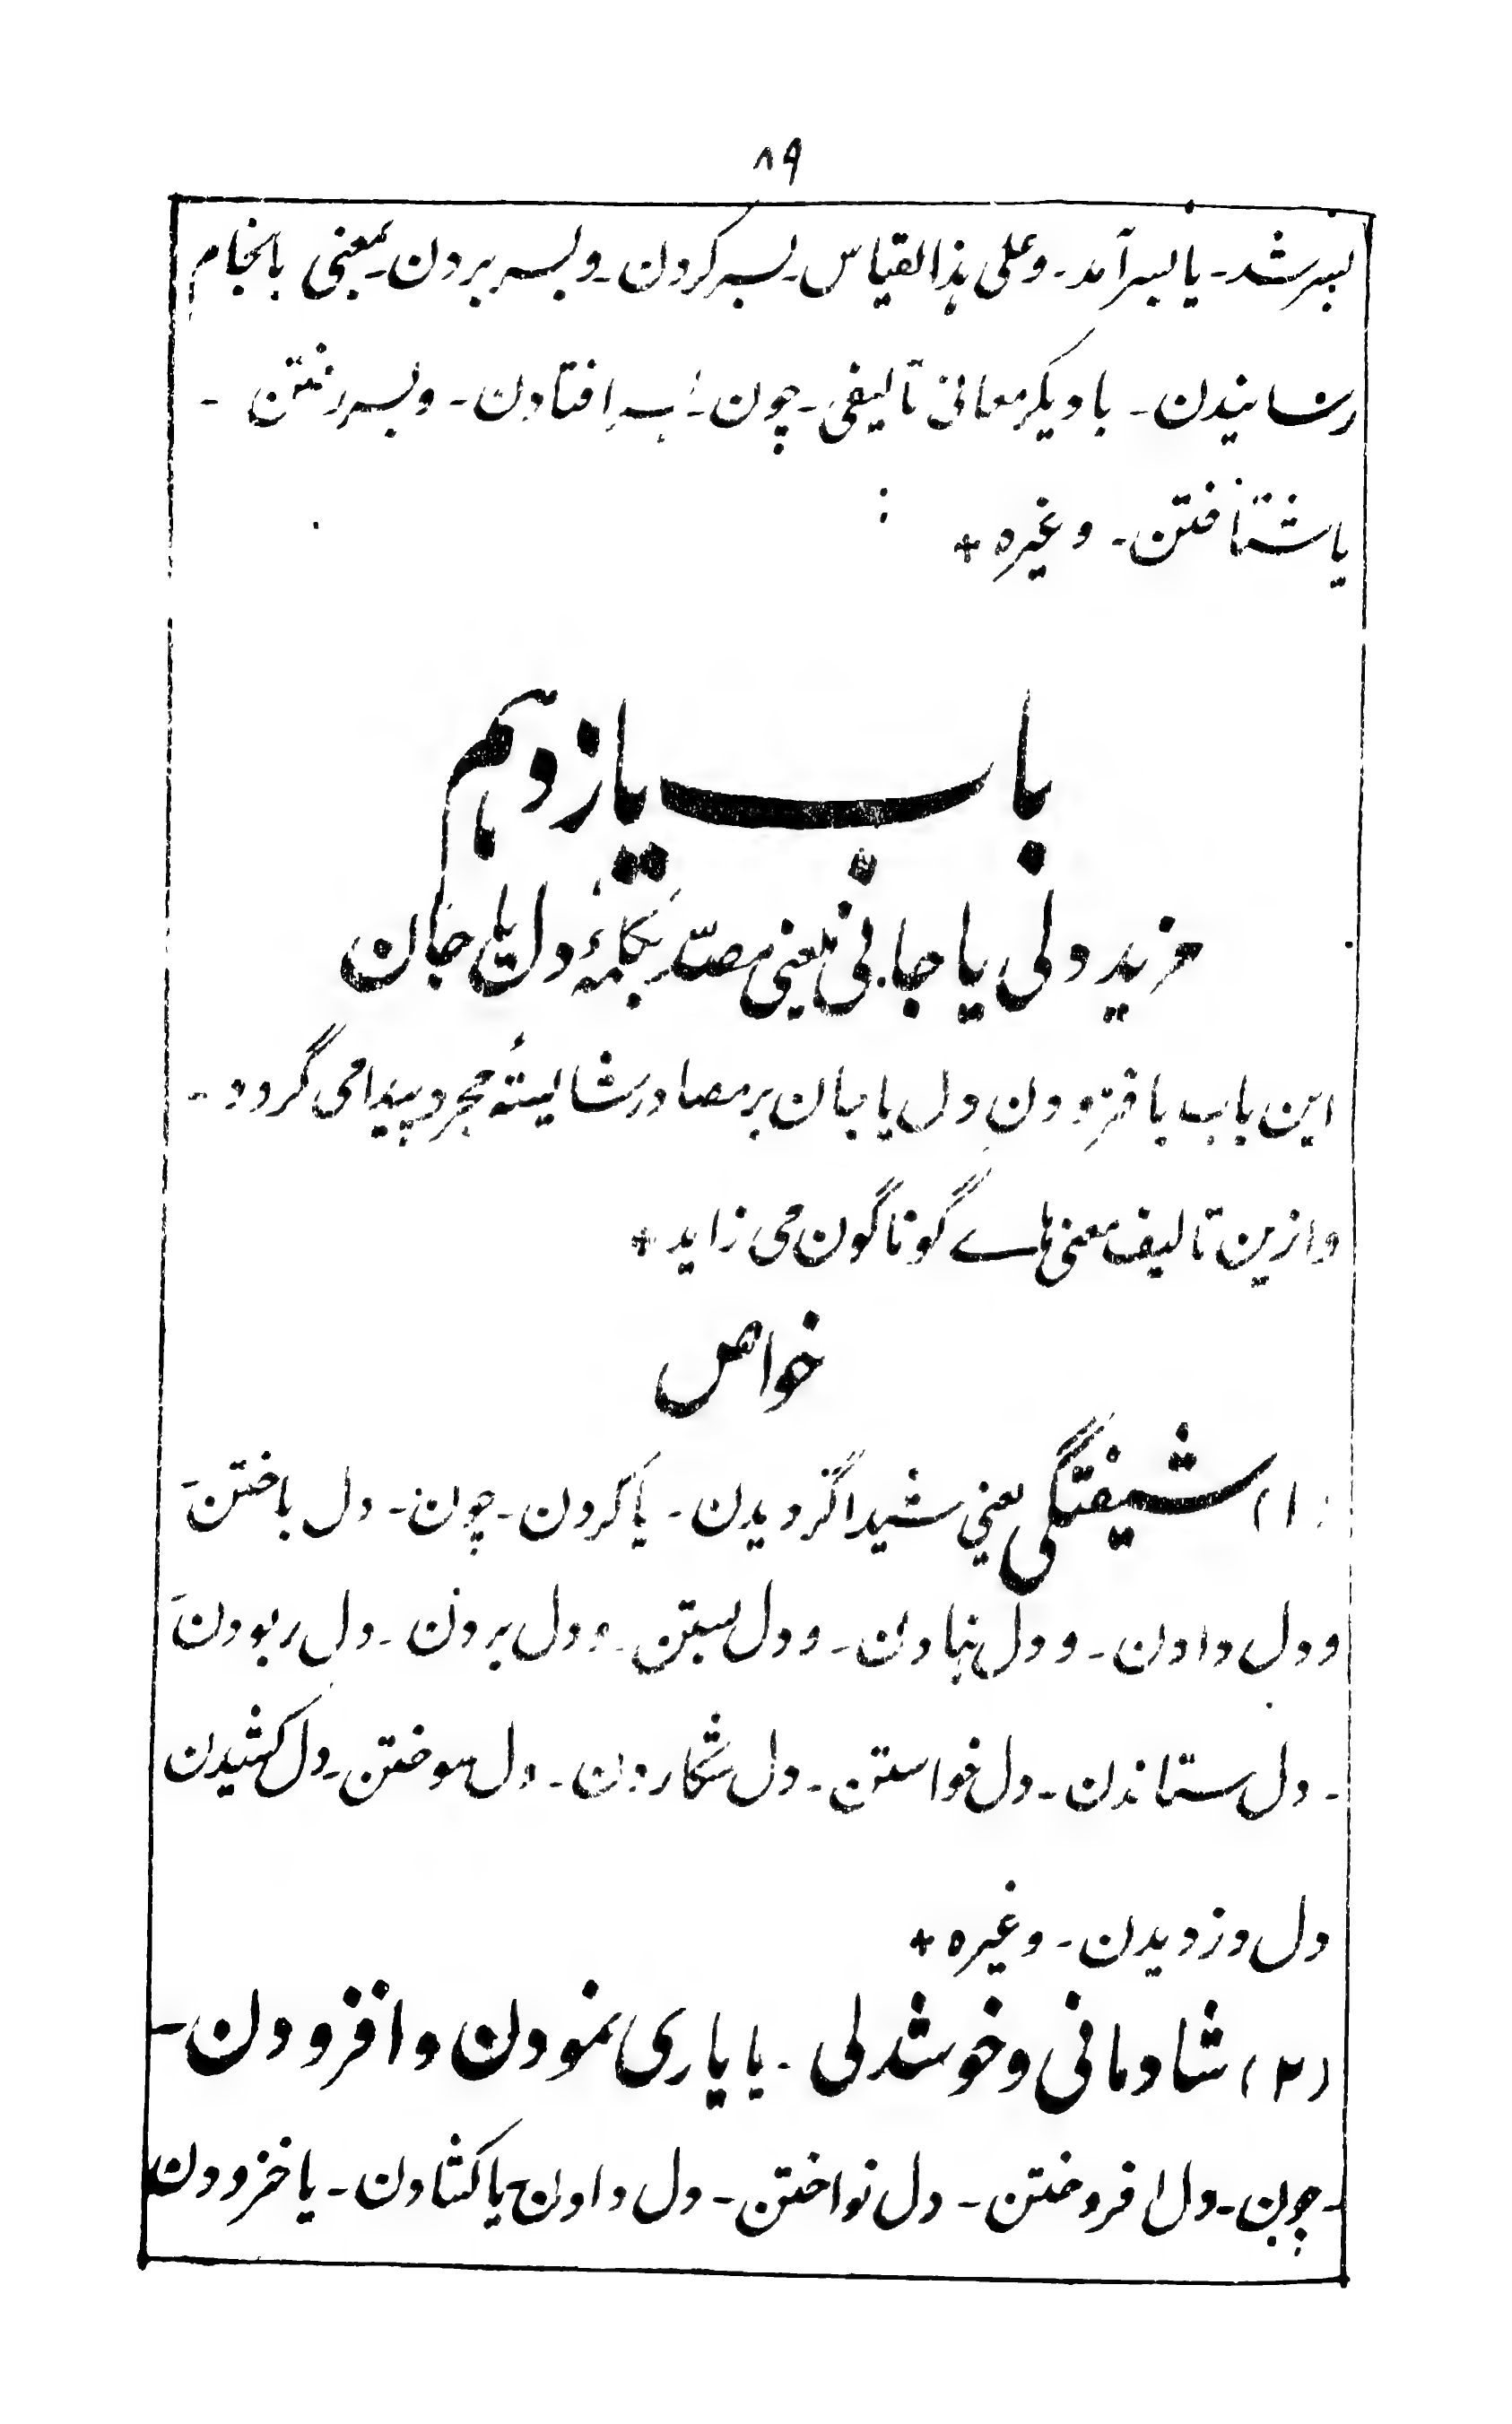 ۸۹
بسرشد۔ یا بسرآمد۔ وعلی ہذا القیاس۔ بسرکردن۔ وبسربردن۔ بمعنی بانجام
رسانیدن۔ با دیگر معانی تالیفی۔ چون۔ بسر افتادن۔ وبسر رفتن۔
یا شتافتن۔ وغیره +
باب یازدہم
مزید دلی یا جانی یعنی مصدّر بکلمۂ دل یا جان
این باب بافزودن دل یا جان بر مصادر شایستۂ مجرد پیدا می گردد۔
وازین تالیف معنی ہاے گوناگون می زاید +
خواص
(۱) شیفتگی یعنی شیدا گردیدن۔ یا کردن۔ چون۔ دل باختن۔
و دل دادن۔ و دل نہادن۔ و دل بستن۔ و دل بردن۔ دل ربودن۔
۔ دل ستاندن۔ دل خواستن۔ دل شکاردن۔ دل سوختن۔ دل کشیدن
دل دزدیدن۔ وغیره +
(۲) شادمانی وخوشدلی۔ یا یاری نمودن وافزودن۔
۔ چون۔ دل افروختن۔ دل نواختن۔ دل دادن یا کشادن۔ یا